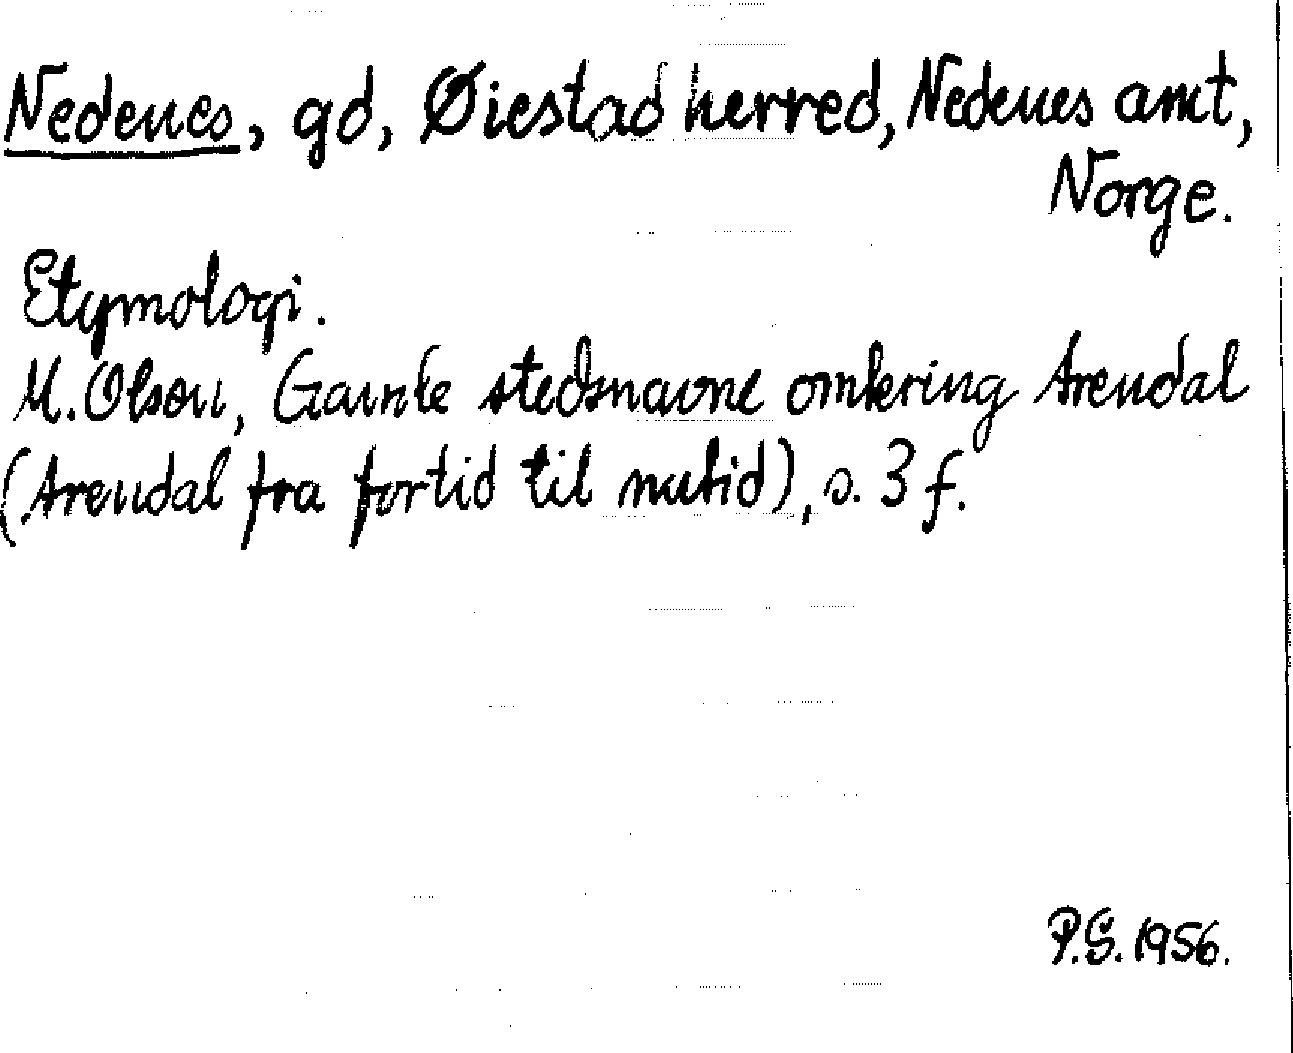 Nedenes, gd, Øiestad herred, Nedenes amt,
Norge.
Etymologi.
M. Olsen, Gamle stedsnavne omkring Arendal
(Arendal fra fortid til nutid), s. 3 f.
P.S. 1956.